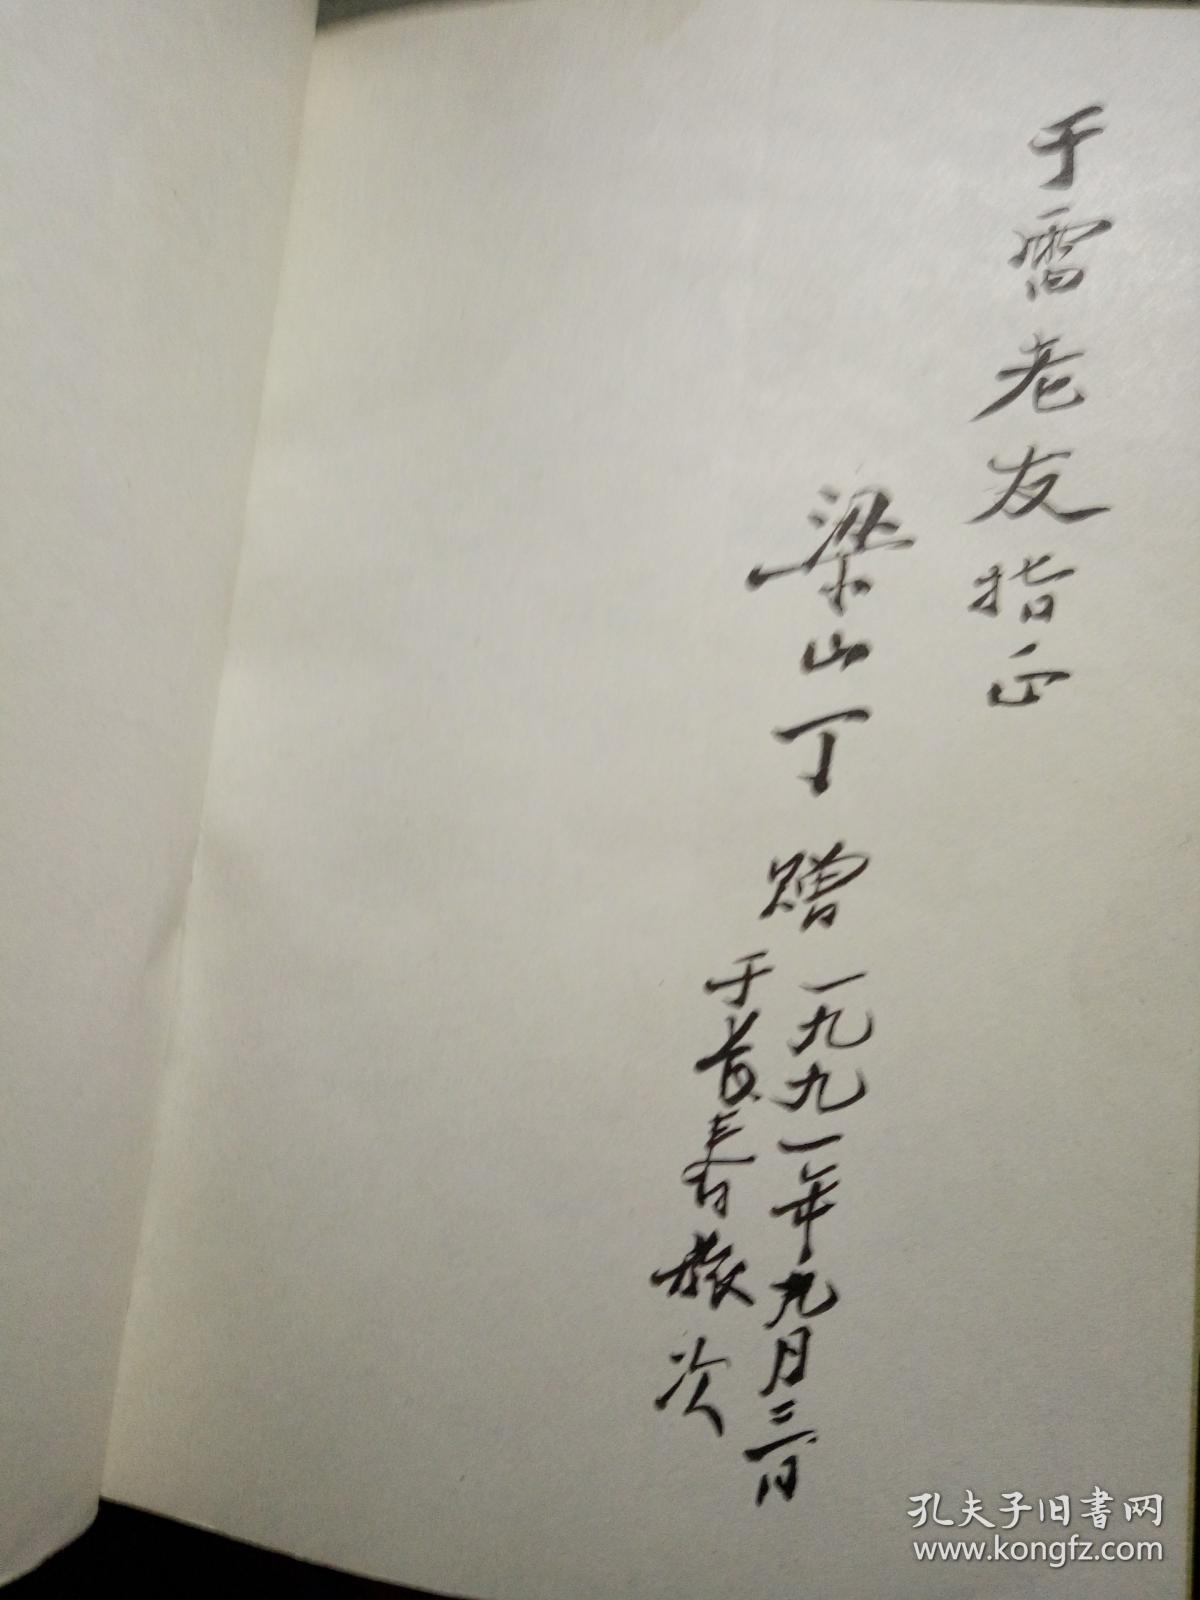 于雷老友指正
梁山丁 赠
一九九一年九月三日
于长春旅次
孔夫子旧書网
www.kongfz.com